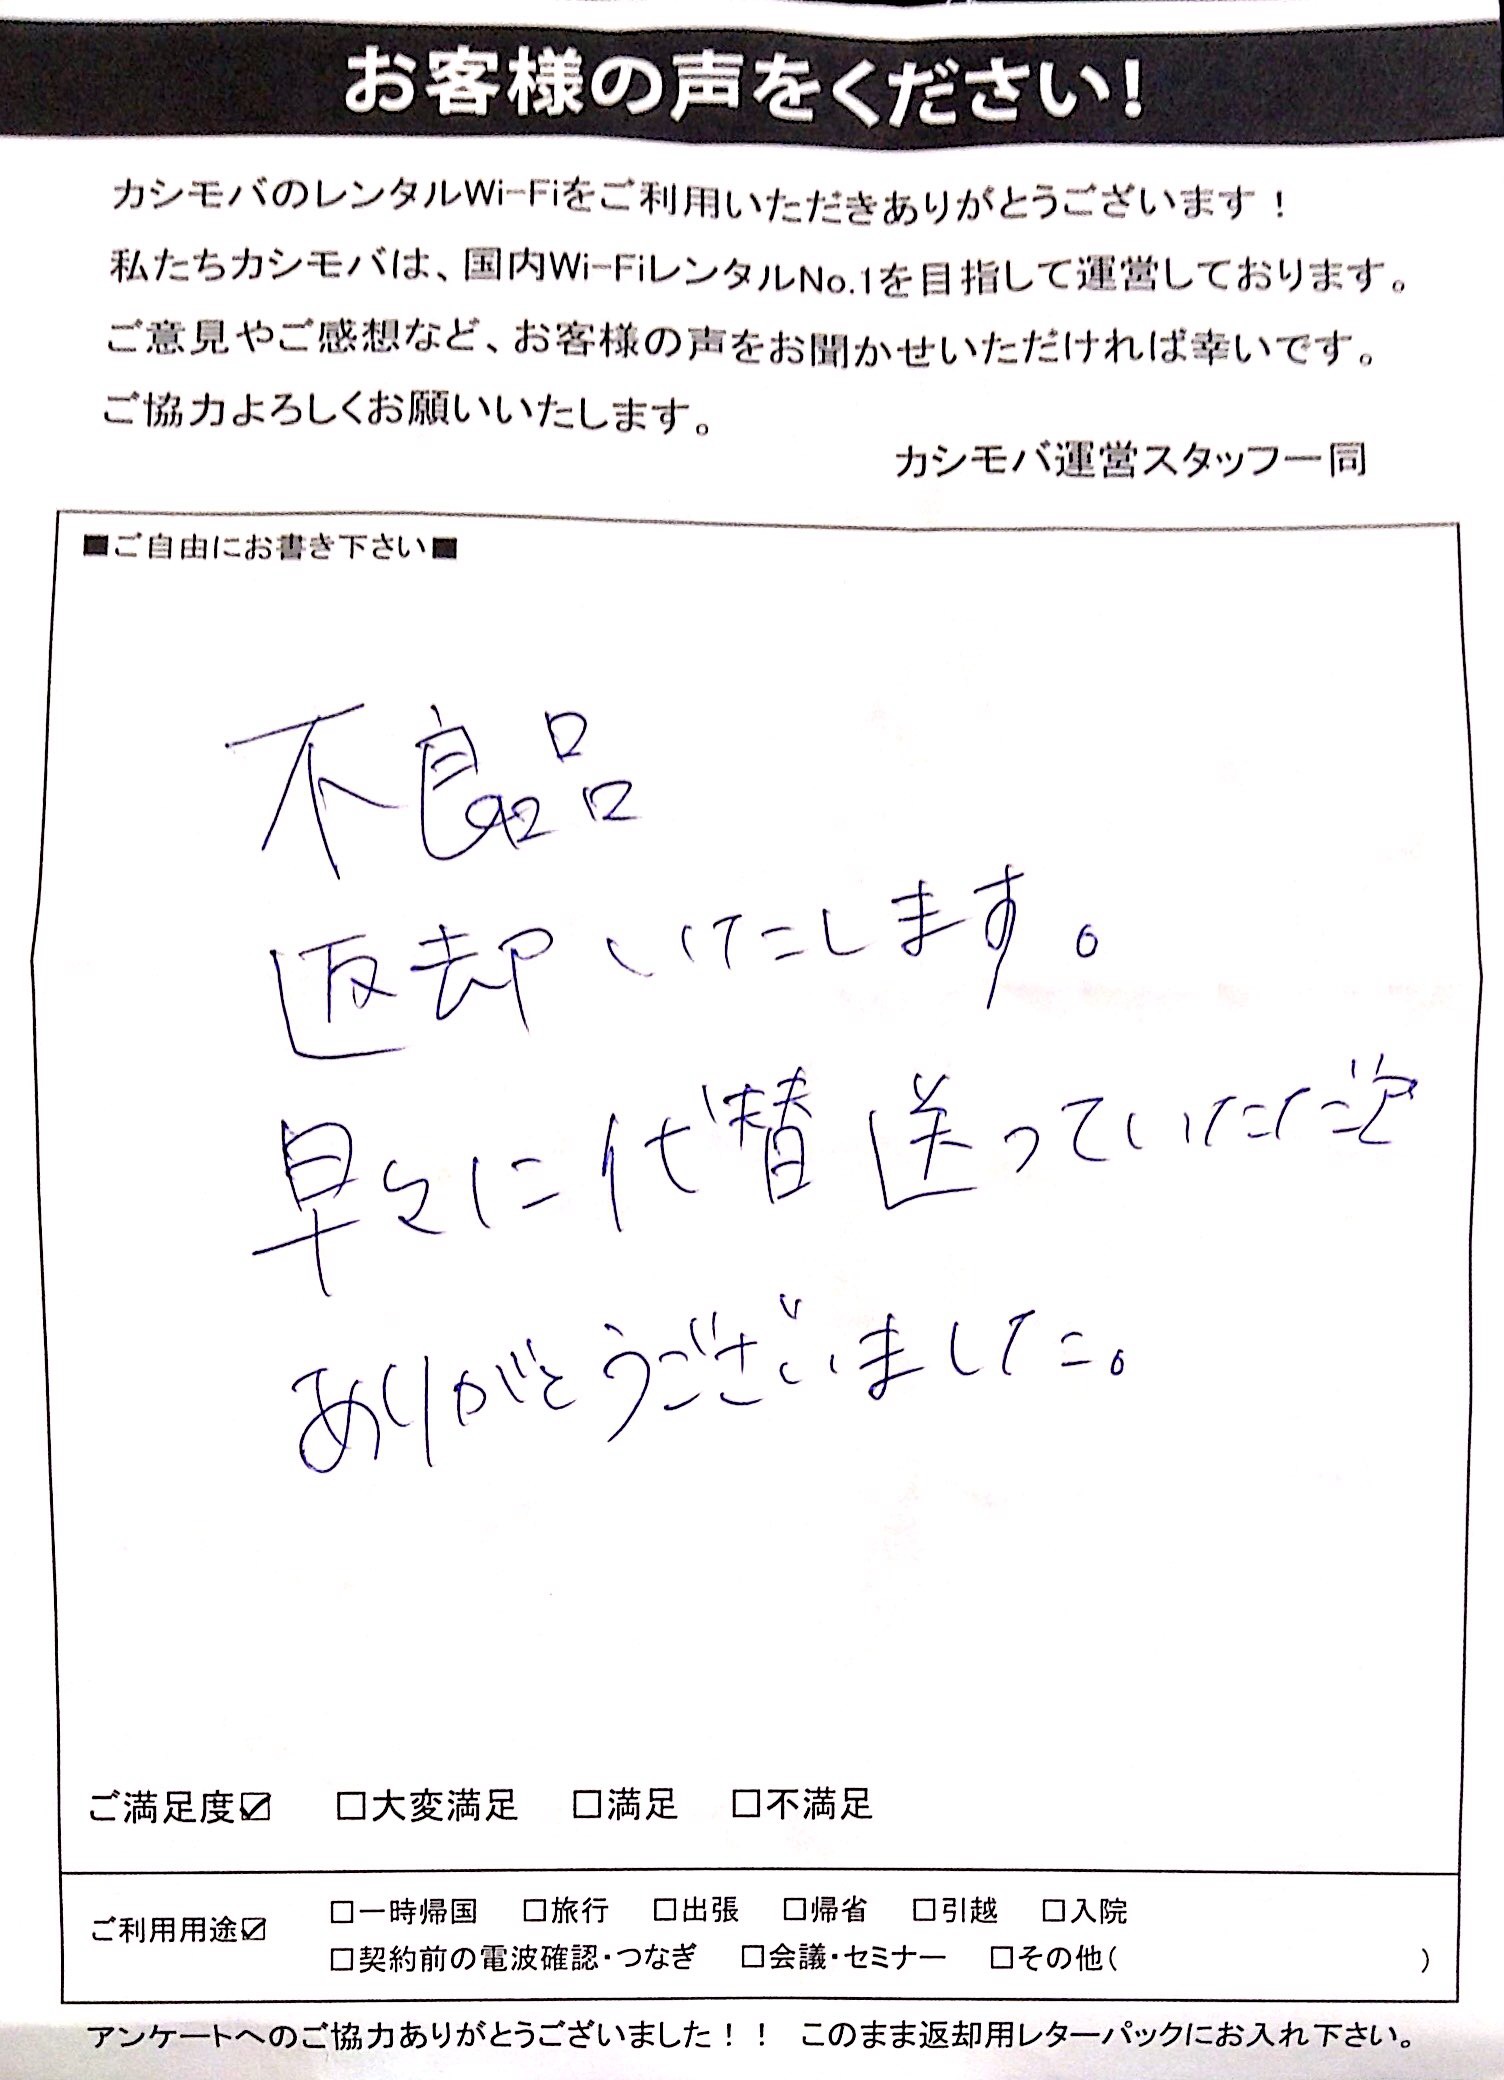 お客様の声をください!
カシモバのレンタルWi-Fiをご利用いただきありがとうございます!
私たちカシモバは、国内Wi-FiレンタルNo.1を目指して運営しております。
ご意見やご感想など、お客様の声をお聞かせいただければ幸いです。
ご協力よろしくお願いいたします。
カシモバ運営スタッフ一同
■ご自由にお書き下さい■
不良品
返却いたします。
早々に代替送っていただき
ありがとうございました。
ご満足度☑ □大変満足 □満足 □不満足
ご利用用途☑ □一時帰国 □旅行 □出張 □帰省 □引越 □入院
□契約前の電波確認・つなぎ □会議・セミナー □その他( )
アンケートへのご協力ありがとうございました!! このまま返却用レターパックにお入れ下さい。